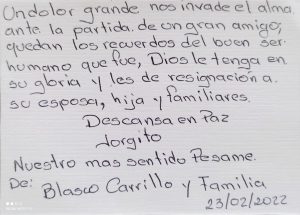 Un dolor grande nos invade el alma
ante la partida de un gran amigo,
quedan los recuerdos del buen ser
humano que fue, Dios le tenga en
su gloria y les de resignación a
su esposa, hija y familiares.
Descansa en Paz
Jorgito
Nuestro mas sentido Pesame.
De: Blasco Carrillo y Familia
23/02/2022